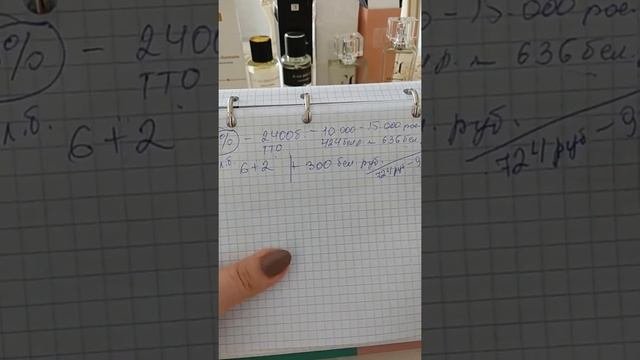 %) - 2400б. - 10.000 - 15.000 рос.
ТТО 424 бел.р. ~ 636 бел.
л.б. 6+2 + 300 бел. руб.
724 руб - 9